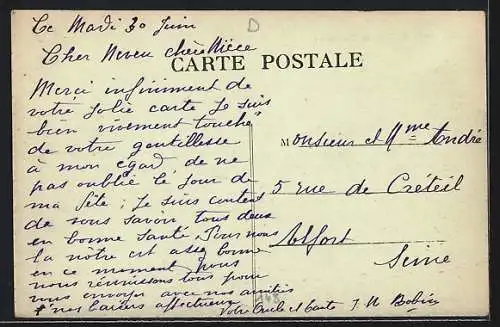 Ce Mardi 30 Juin
Cher Neveu chère Nièce
CARTE POSTALE
Merci infiniment de
votre jolie carte Je suis
bien vivement touché
de votre gentillesse
à mon égard de ne
pas oublié le jour de
ma fête ; Je suis content
de vous savoir tous deux
en bonne santé, Pour nous
la nôtre est assez bonne
en ce moment, nous
nous réunissons tous pour
vous envoyer avec nos amitiés
+ nos baisers affectueux
Votre Oncle et Tante J. M Bobin
Monsieur et Mme André
5 rue de Créteil
Alfort
Seine